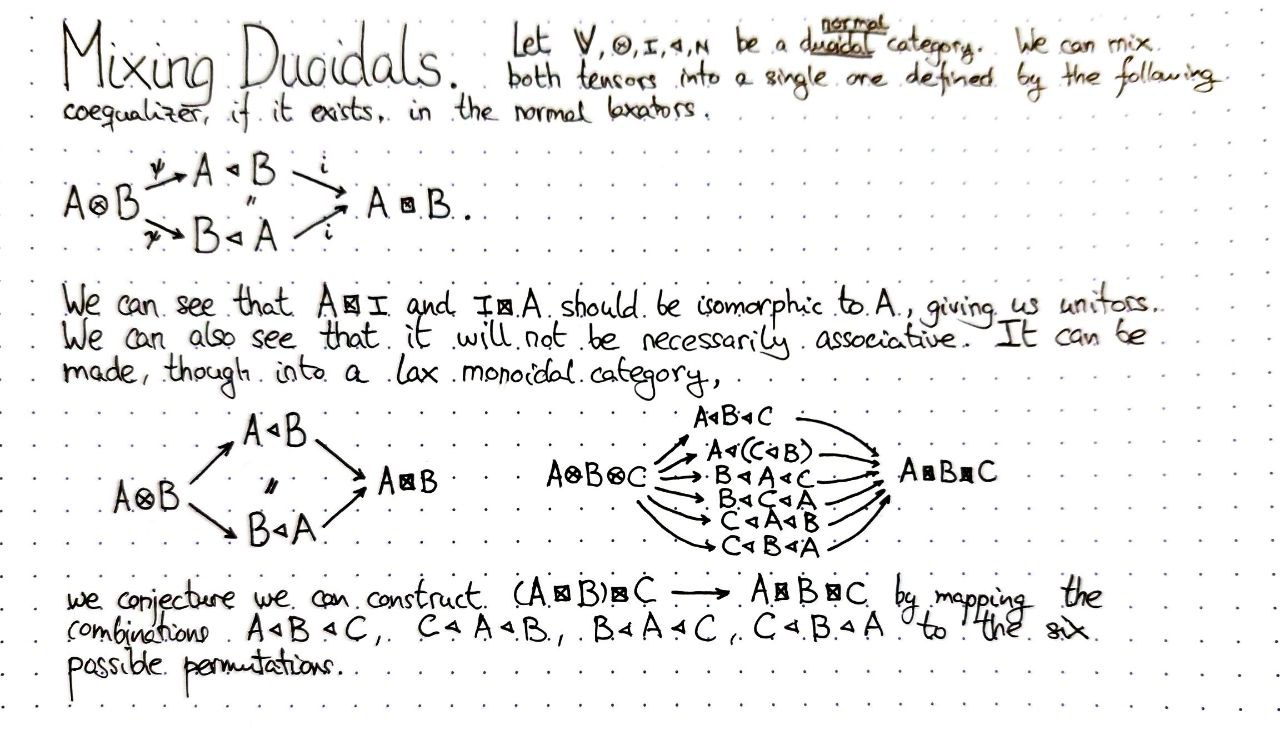 Mixing Duoidals. Let V, ⊗, I, ◁, N be a normal duoidal category. We can mix
both tensors into a single one defined by the following
coequalizer, if it exists, in the normal laxators.
ψ A ◁ B i
A⊗B " A ⊠ B.
ψ B ◁ A i
We can see that A⊠I and I⊠A should be isomorphic to A, giving us unitors.
We can also see that it will not be necessarily associative. It can be
made, though into a lax monoidal category,
A◁B
A⊗B " A⊠B
B◁A
A◁B◁C
A◁(C◁B)
A⊗B⊗C B◁A◁C A⊠B⊠C
B◁C◁A
C◁A◁B
C◁B◁A
we conjecture we can construct (A⊠B)⊠C ⟶ A⊠B⊠C by mapping the
combinations A◁B◁C, C◁A◁B, B◁A◁C, C◁B◁A to the six
possible permutations.